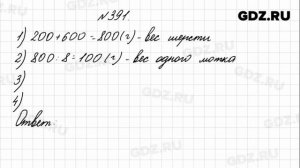 GDZ.RU
№391
1) 200+600=800(г) - вес шерсти
2) 800:8=100(г) - вес одного мотка
3)
4)
Ответ
GDZ.RU
GDZ.RU